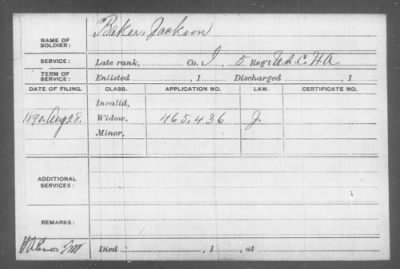 NAME OF SOLDIER: Baker, Jackson
SERVICE: Late rank, Co. I, 5 Reg't U.S.C.H.A
TERM OF SERVICE: Enlisted , 1 Discharged , 1
DATE OF FILING. CLASS. APPLICATION NO. LAW. CERTIFICATE NO.
Invalid,
1890 Aug 28. Widow, 465,436 J.
Minor,
ADDITIONAL SERVICES:
REMARKS:
Died , 1 , at